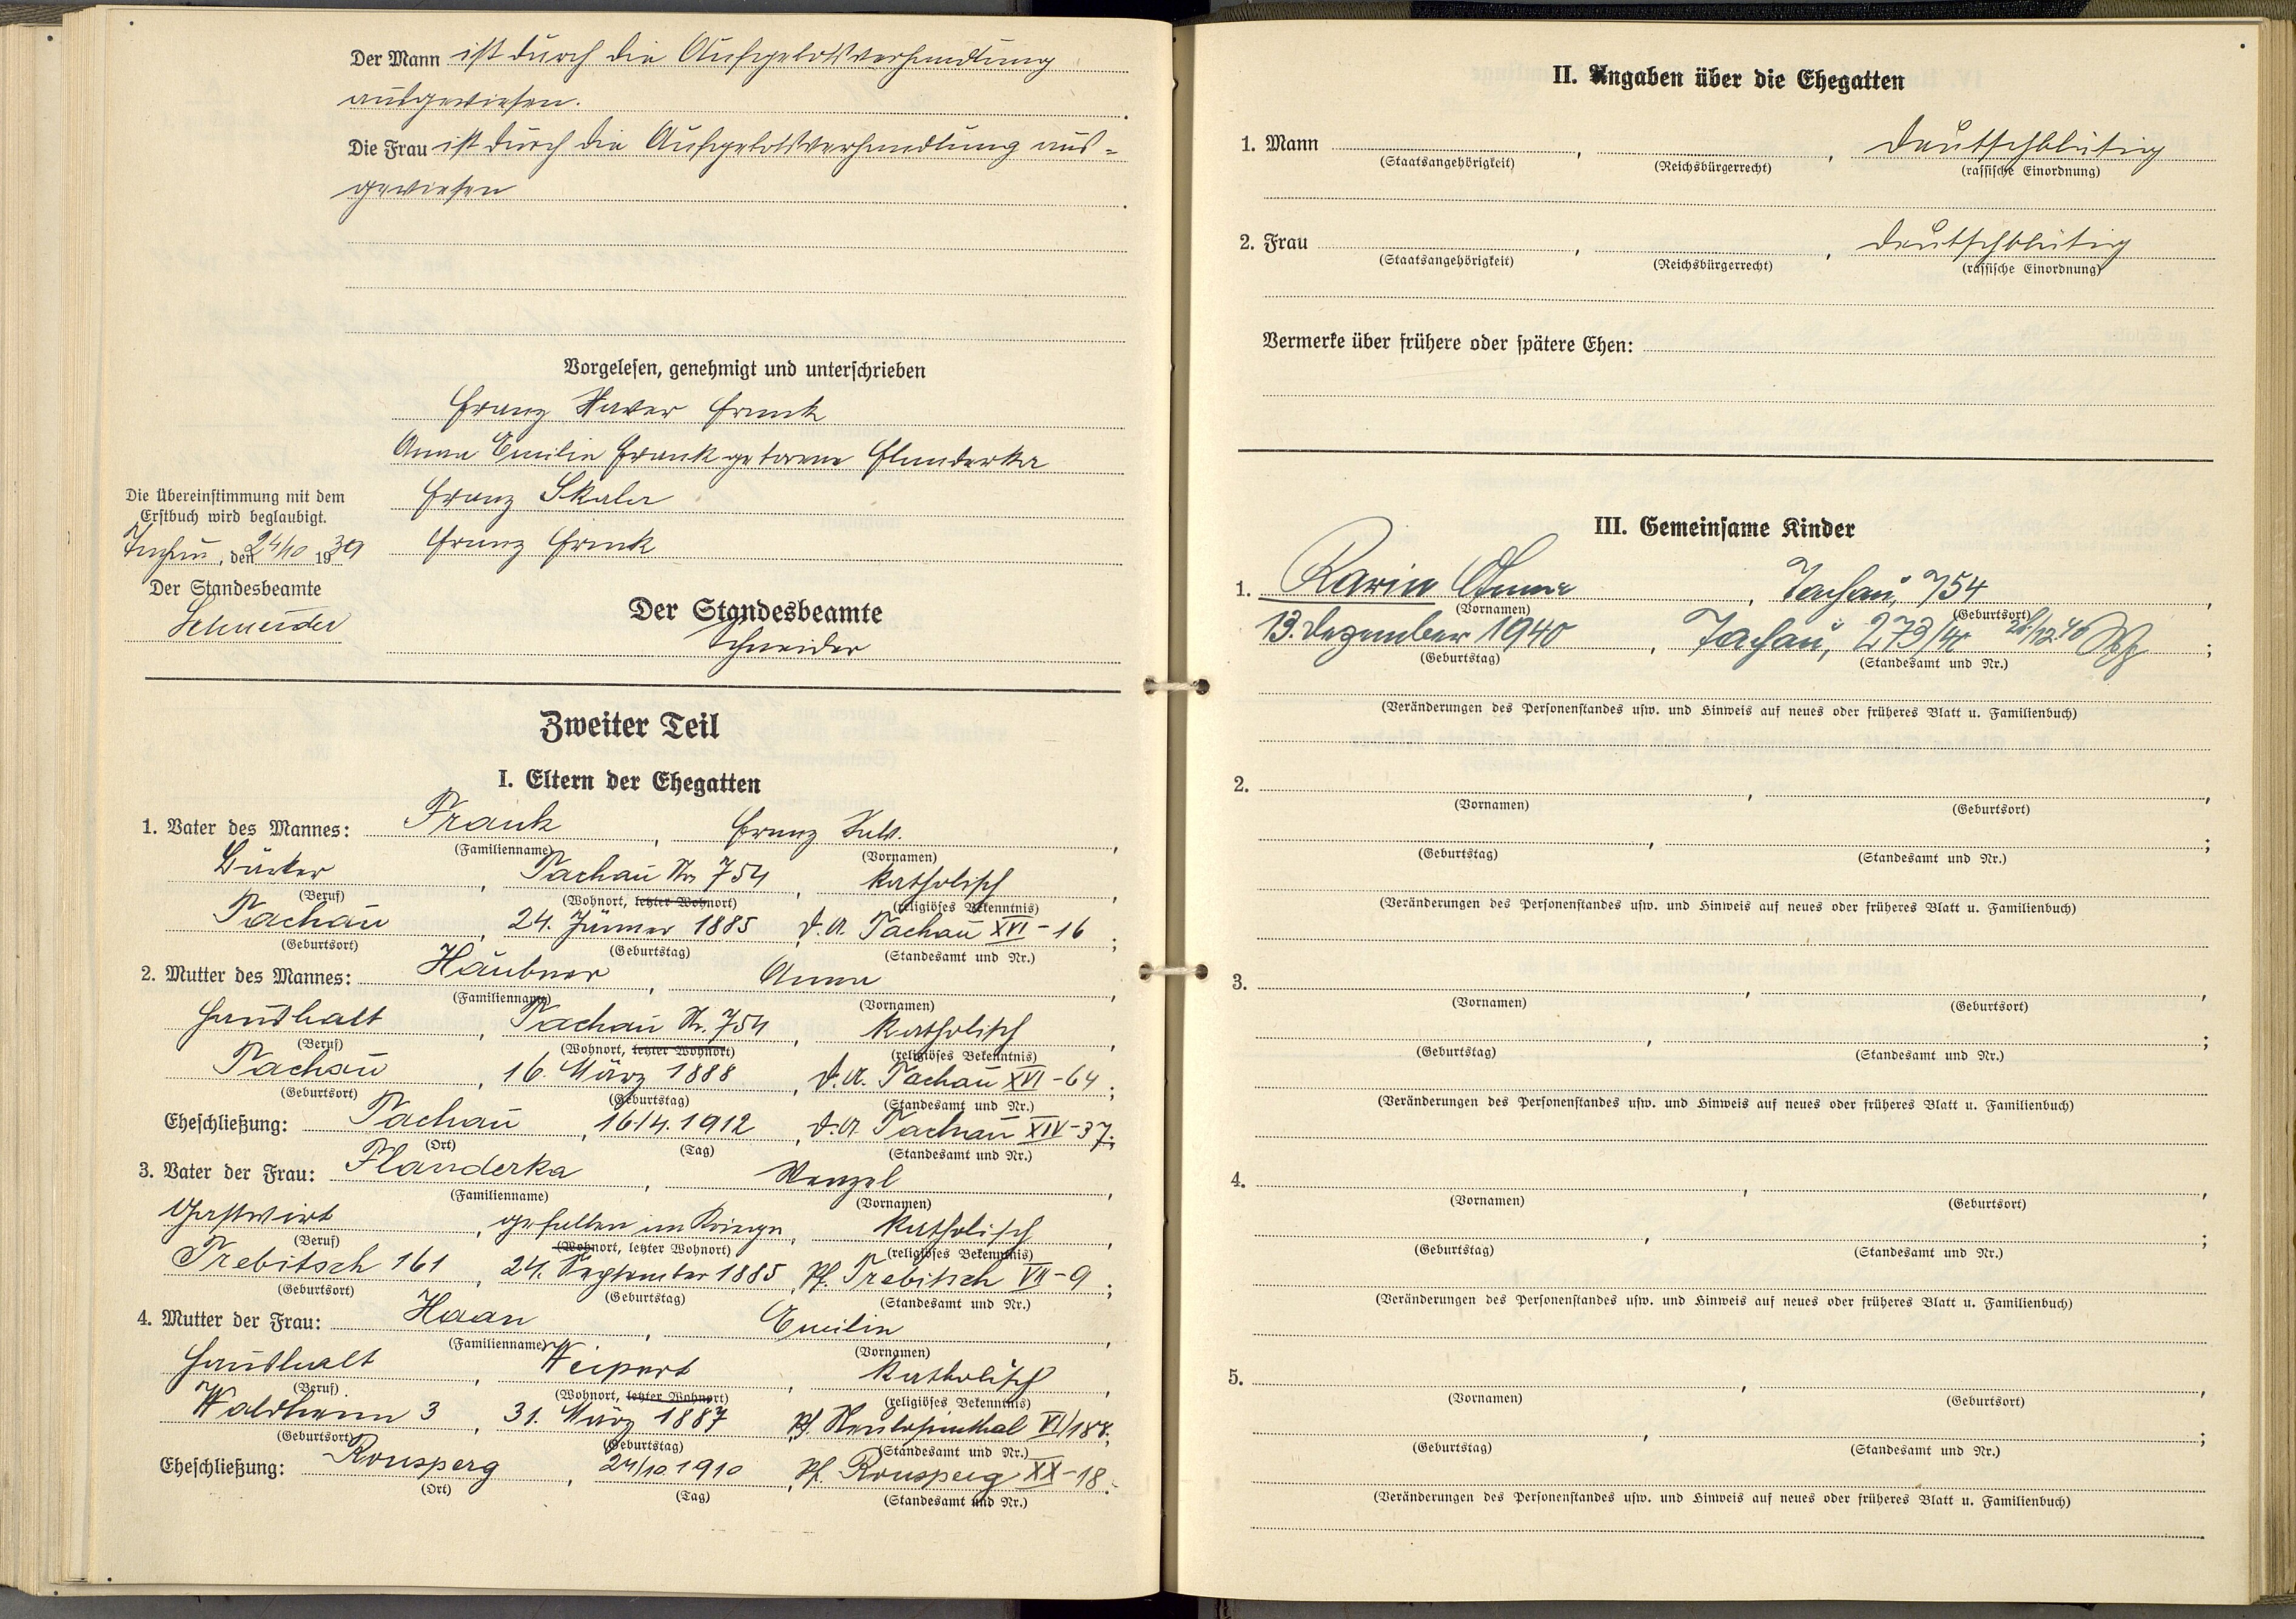 Der Mann ist durch die Aufgebotsverhandlung
ausgewiesen.
Die Frau ist durch die Aufgebotsverhandlung aus=
gewiesen
Vorgelesen, genehmigt und unterschrieben
Franz Xaver Frank
Anna Emilie Frank geborene Flanderka
Franz Skala
Franz Frank
Die Übereinstimmung mit dem
Erstbuch wird beglaubigt.
Tachau, den 24/10 1939
Der Standesbeamte
Schneider
Der Standesbeamte
Schneider
Zweiter Teil
I. Eltern der Ehegatten
1. Vater des Mannes: Frank, Franz
(Familienname) (Vornamen)
Bäcker, Tachau Nr. 754, katholisch,
(Beruf) (Wohnort, letzter Wohnort) (religiöses Bekenntnis)
Tachau, 24. Jänner 1885, D.A. Tachau XVI-16;
(Geburtsort) (Geburtstag) (Standesamt und Nr.)
2. Mutter des Mannes: Häubner, Anna,
(Familienname) (Vornamen)
Haushalt, Tachau Nr. 754, katholisch,
(Beruf) (Wohnort, letzter Wohnort) (religiöses Bekenntnis)
Tachau, 16. März 1888, D.A. Tachau XVI-64;
(Geburtsort) (Geburtstag) (Standesamt und Nr.)
Eheschließung: Tachau, 16/4.1912, D.A. Tachau XIV-37;
(Ort) (Tag) (Standesamt und Nr.)
3. Vater der Frau: Flanderka, Wenzel,
(Familienname) (Vornamen)
Gastwirt, gefallen im Kriege, katholisch,
(Beruf) (Wohnort, letzter Wohnort) (religiöses Bekenntnis)
Trebitsch 161, 24. September 1885, Pf. Trebitsch VII-9;
(Geburtsort) (Geburtstag) (Standesamt und Nr.)
4. Mutter der Frau: Haan, Emilie,
(Familienname) (Vornamen)
Haushalt, Weipert, katholisch,
(Beruf) (Wohnort, letzter Wohnort) (religiöses Bekenntnis)
Waldheim 3, 31. März 1887, Pf. Neulosimthal VI/188.;
(Geburtsort) (Geburtstag) (Standesamt und Nr.)
Eheschließung: Ronsperg, 24/10.1910, Pf. Ronsperg XX-18.
(Ort) (Tag) (Standesamt und Nr.)
II. Angaben über die Ehegatten
1. Mann , , deutschblütig
(Staatsangehörigkeit) (Reichsbürgerrecht) (rassische Einordnung)
2. Frau , , deutschblütig
(Staatsangehörigkeit) (Reichsbürgerrecht) (rassische Einordnung)
Vermerke über frühere oder spätere Ehen:
III. Gemeinsame Kinder
1. Karin Anna, Tachau, 754,
(Vornamen) (Geburtsort)
13. Dezember 1940, Tachau, 273/40
(Geburtstag) (Standesamt und Nr.)
(Veränderungen des Personenstandes usw. und Hinweis auf neues oder früheres Blatt u. Familienbuch)
2. , ,
(Vornamen) (Geburtsort)
, ;
(Geburtstag) (Standesamt und Nr.)
(Veränderungen des Personenstandes usw. und Hinweis auf neues oder früheres Blatt u. Familienbuch)
3. , ,
(Vornamen) (Geburtsort)
, ;
(Geburtstag) (Standesamt und Nr.)
(Veränderungen des Personenstandes usw. und Hinweis auf neues oder früheres Blatt u. Familienbuch)
4. , ,
(Vornamen) (Geburtsort)
, ;
(Geburtstag) (Standesamt und Nr.)
(Veränderungen des Personenstandes usw. und Hinweis auf neues oder früheres Blatt u. Familienbuch)
5. , ,
(Vornamen) (Geburtsort)
, ;
(Geburtstag) (Standesamt und Nr.)
(Veränderungen des Personenstandes usw. und Hinweis auf neues oder früheres Blatt u. Familienbuch)